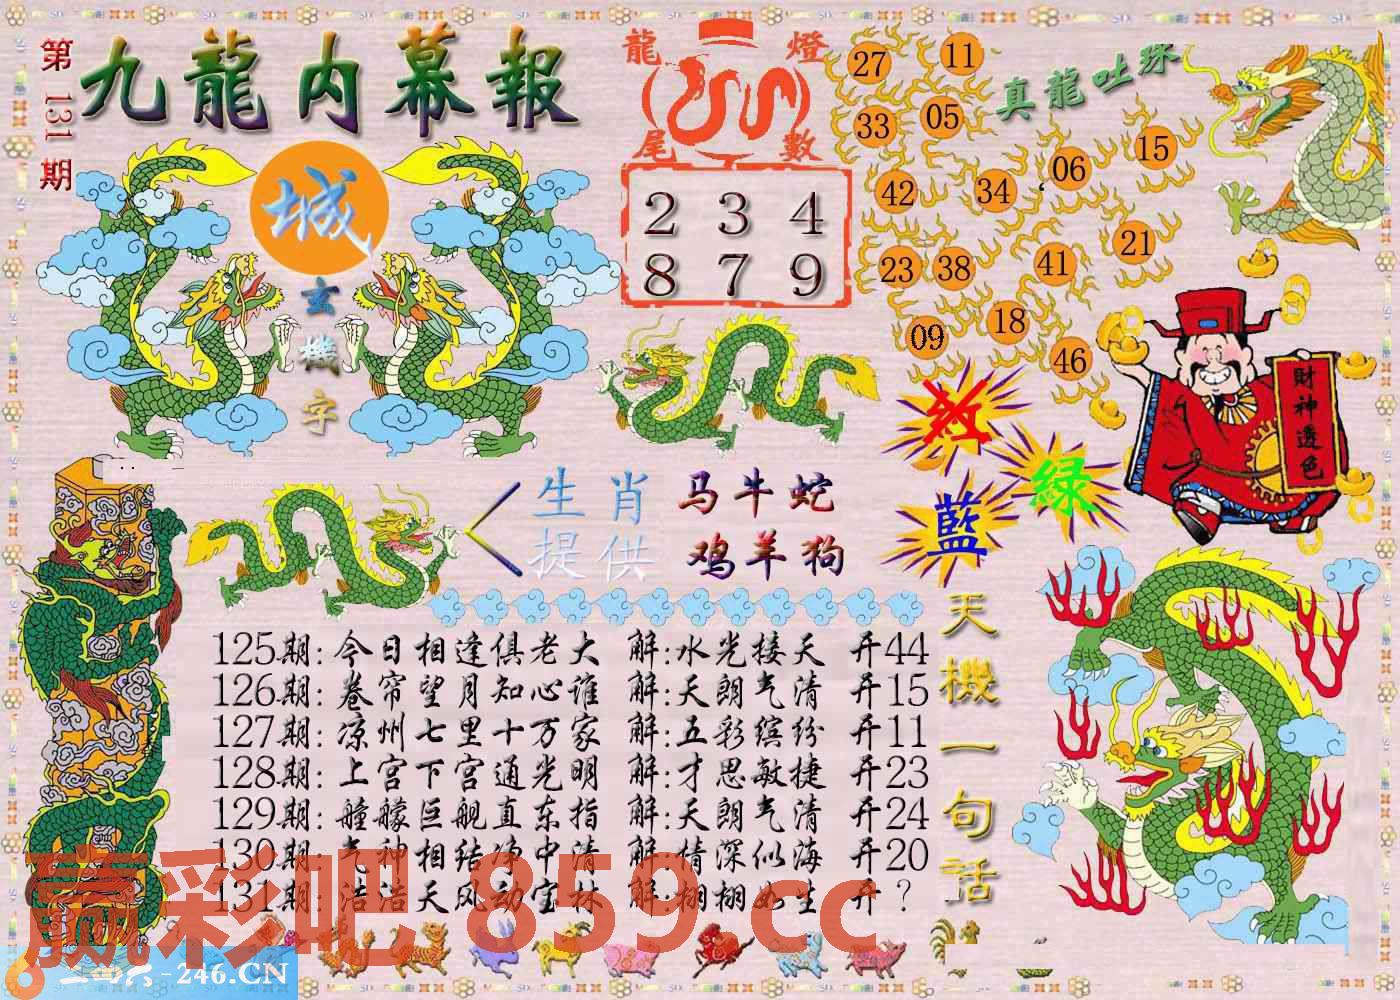 第131期
九龍内幕報
城
玄機字
龍燈
尾數
2 3 4
8 7 9
真龍吐珠
27 11
33 05
42 34 06 15
23 38 41 21
09 18 46
財神透色
红
绿
藍
生肖提供
马牛蛇
鸡羊狗
天機一句話
125期:今日相逢俱老大 解:水光接天 开44
126期:卷帘望月知心谁 解:天朗气清 开15
127期:凉州七里十万家 解:五彩缤纷 开11
128期:上宫下宫通光明 解:才思敏捷 开23
129期:艟艨巨舰直东指 解:天朗气清 开24
130期:气神相结净中清 解:情深似海 开20
131期:浩浩天风动宝林 解:栩栩如生 开?
赢彩吧 859.cc
-246.CN